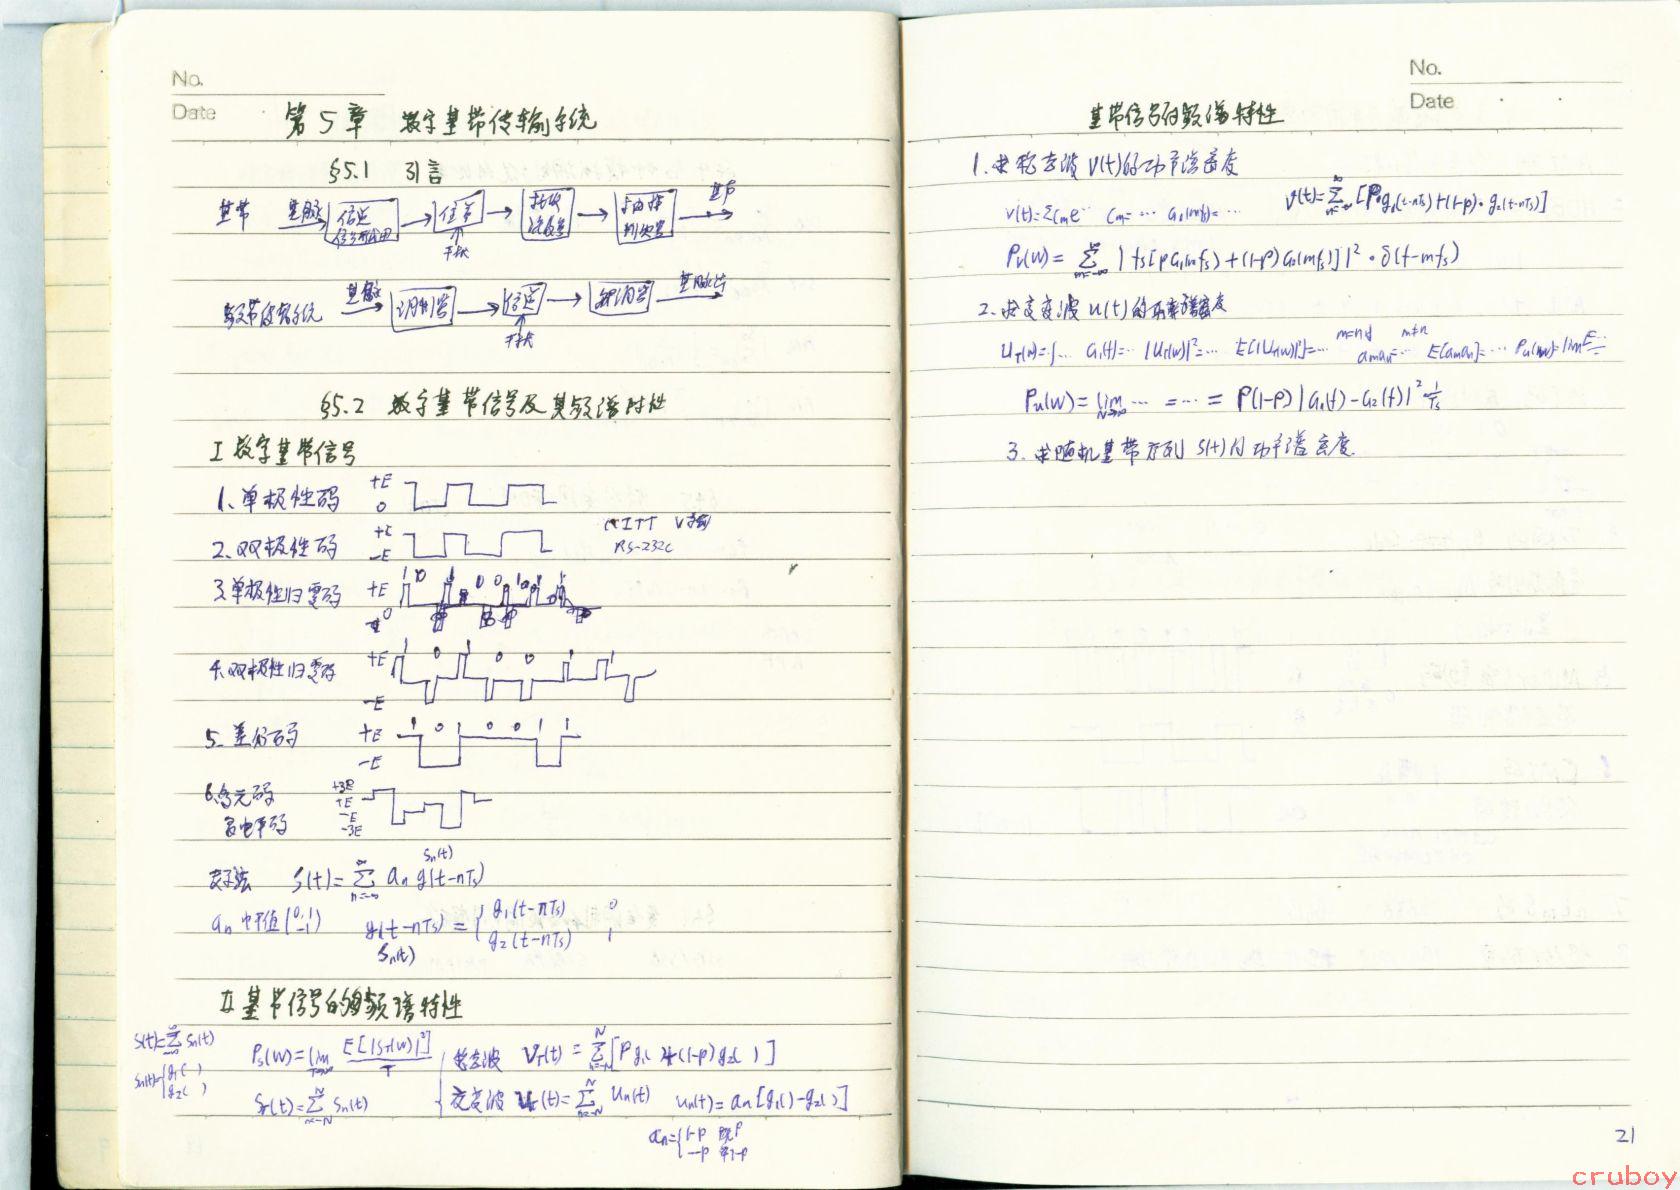 No.
Date
第5章 数字基带传输系统
§5.1 引言
基带 基脉 信道信号形成器 信道 接收滤波器 抽样判决器 基带
干扰
频带传输系统 基脉 调制器 信道 解调器 基脉冲
干扰
§5.2 数字基带信号及其频谱特性
I 数字基带信号
1、单极性码 +E 0
2、双极性码 +E -E CCITT V RS-232C
3、单极性归零码 +E 0 1 0 1 0 0 1
4、双极性归零码 +E -E 1 0 1 0 0 1 1
5、差分码 +E -E 1 0 1 0 0 1 1
6、多元码 +3E +E -E -3E
多电平码
表示法 S(t)=∑_{n=-∞}^{∞} an g(t-nTs) Sn(t)
an 电平值 (0,1 -1) g(t-nTs)={g1(t-nTs) 0 g2(t-nTs) 1
Sn(t)
II 基带信号的频谱特性
S(t)=∑Sn(t)
Sn(t)={g1( ) g2( )
Ps(W)=lim_{T→∞} E[|ST(W)|²]/T 稳态波 VT(t)=∑_{n=-N}^{N}[Pg1( )+(1-p)g2( )]
ST(t)=∑_{n=-N}^{N} Sn(t) 交变波 UT(t)=∑_{n=-N}^{N} Un(t) Un(t)=an[g1( )-g2( )]
an={1-p 概P -p 率1-p
No.
Date
基带信号的频谱特性
1.求稳态波V(t)的功率谱密度
V(t)=∑Cme… Cm=… G1(mf)=… V(t)=∑_{n=-∞}^{∞}[P·g1(t-nTs)+(1-p)·g2(t-nTs)]
Pv(W)=∑_{m=-∞}^{∞}|fs[pG1(mfs)+(1-p)G2(mfs)]|²·δ(f-mfs)
2.求交变波u(t)的功率谱密度
UT(W)=∫… G1(f)=… |UT(W)|²=… E[|UT(W)|²]=… m=n m≠n aman=… E[aman]=… Pu(W)=lim E…
Pu(W)=lim_{N→∞}…=…=P(1-P)|G1(f)-G2(f)|² 1/Ts
3.求随机基带序列S(t)的功率谱密度
21
cruboy